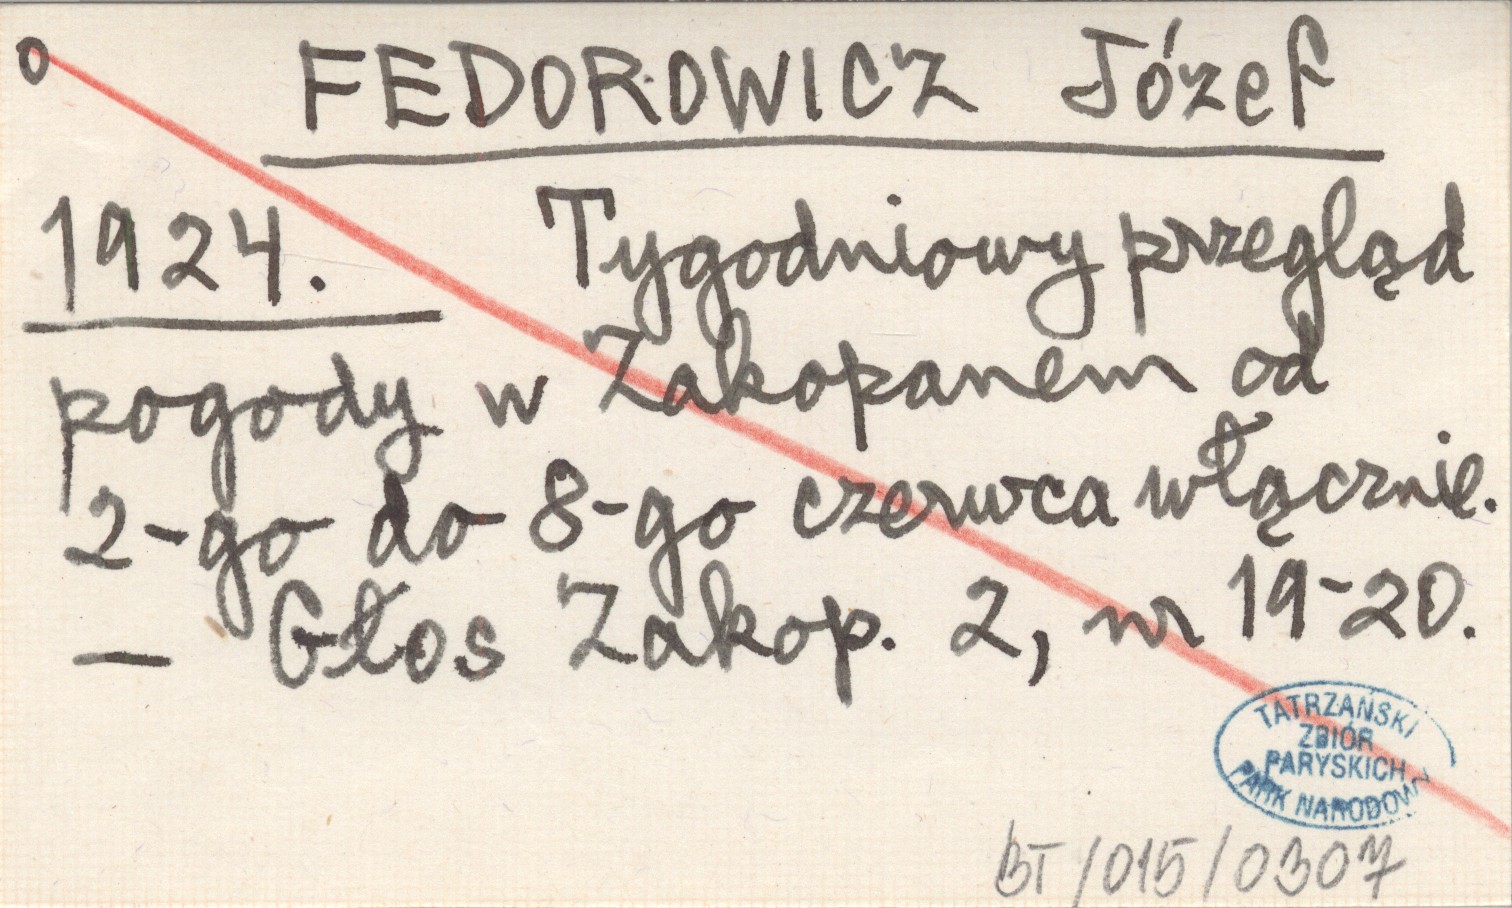 o FEDOROWICZ Józef
1924. Tygodniowy przegląd
pogody w Zakopanem od
2-go do 8-go czerwca włącznie.
— Głos Zakop. 2, nr 19-20.
TATRZAŃSKI
ZBIÓR
PARYSKICH
PARK NARODOWY
BT/015/0307